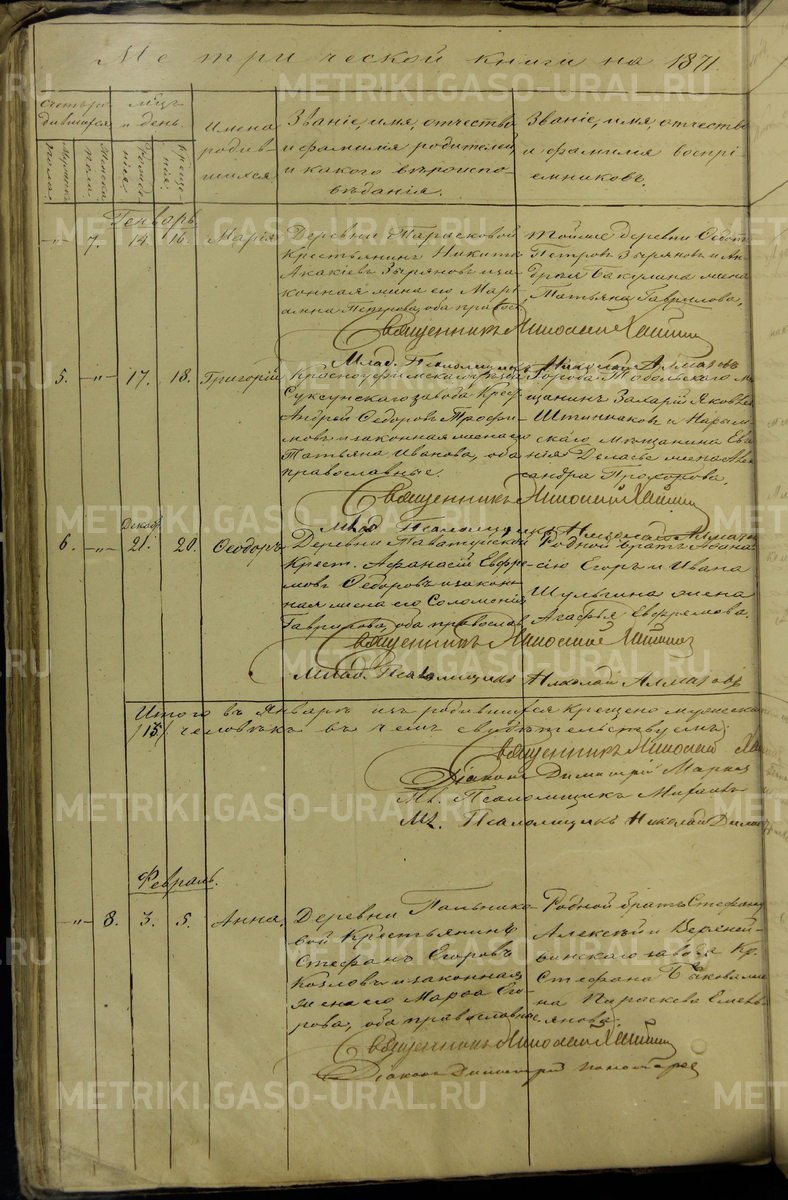 Метрической книги на 1871.
Счетъ родившихся
Мѣсяцъ и день.
Имена родившихся
Званіе, имя, отчество и фамилія родителей, и какого вѣроисповѣданія.
Званіе, имя, отчество и фамилія воспріемниковъ.
Генварь
-"- 7. 14. 16. Марія
Деревни Парасковой
Крестьянинъ Никита
Акакіевъ Зыряновъ и за-
конная жена его Марі-
анна Петрова, оба правосл.
Тойже деревни Ѳедотъ
Петровъ Зыряновъ и Ан-
дрея Бакулина жена
Татьяна Гаврилова,
Священникъ Николай
Млад. Псаломщикъ Николай Алмазовъ
5. -"- 17. 18. Григорій
Красноуфимскаго уѣзда
Суксунскаго завода Крест.
Андрей Ѳедоровъ Трофи-
мовъ и законная жена его
Татьяна Иванова, оба
православные.
Города Тобольскаго мѣ-
щанинъ Захарій Яковлевъ
скаго мѣщанина
жена Алек-
сандра Прохорова,
Священникъ Николай
Млад. Псаломщикъ Николай Алмазовъ
6. -"- Декаб. 21. 20. Ѳеодоръ
Деревни Таватуйской
Крест. Афанасій Евфре-
мовъ Ѳедоровъ и закон-
ная жена его Соломенія
Гаврилова, оба правосл.
Родной братъ Афана-
сію Егоръ и Ивана
Шульгина жена
Агафья Евфремова.
Священникъ Николай
Млад. Псаломщикъ Николай Алмазовъ
Итого въ Январѣ изъ родившихся крещено мужеска
/13/ человѣкъ въ чемъ свидѣтельствуемъ;
Священникъ Николай
Діаконъ Димитрій
Мл. Псаломщикъ
Мл. Псаломщикъ Николай
Февраль.
-"- 8. 3. 5. Анна.
Деревни Пальнико-
вой Крестьянинъ
Стефанъ Егоровъ
Козловъ и законная
жена его Марѳа Его-
рова, оба православные.
Родной братъ Стефану
Алексѣй и Верхней-
винскаго завода Кр.
Стефана Быкова же-
на Параскева Емель-
янова.
Священникъ Николай
Діаконъ Димитрій Пономаревъ
METRIKI.GASO-URAL.RU